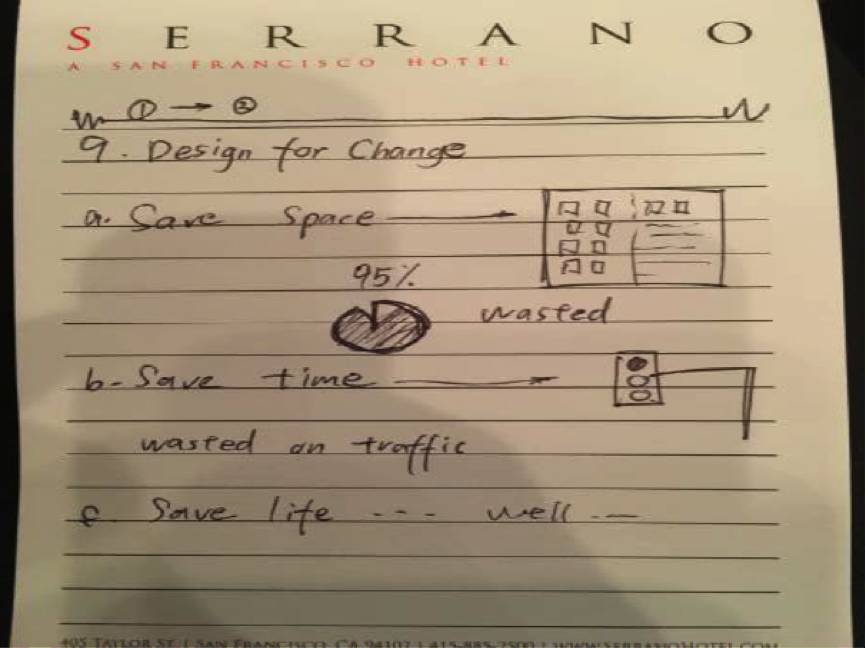 SERRANO
A SAN FRANCISCO HOTEL
① → ②
9. Design for Change
a. Save Space
95%
wasted
b- Save time
wasted on traffic
c. Save life --- well --
405 TAYLOR ST. | SAN FRANCISCO, CA 94102 | 415-885-2500 | WWW.SERRANOHOTEL.COM